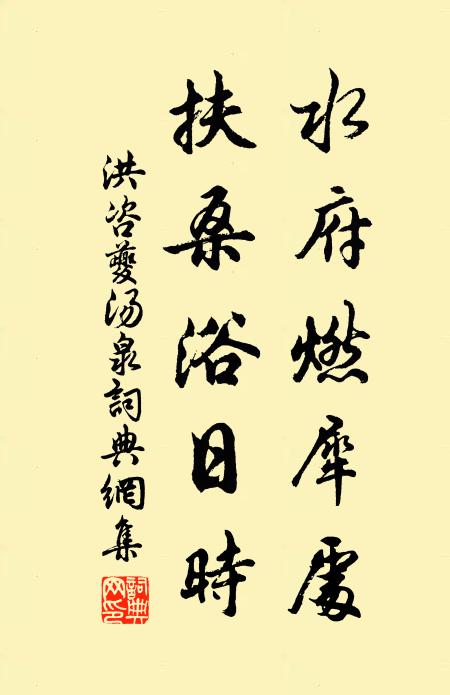 水府燃犀處
扶桑浴日時
洪咨夔汤泉詞典網集
詞典網印